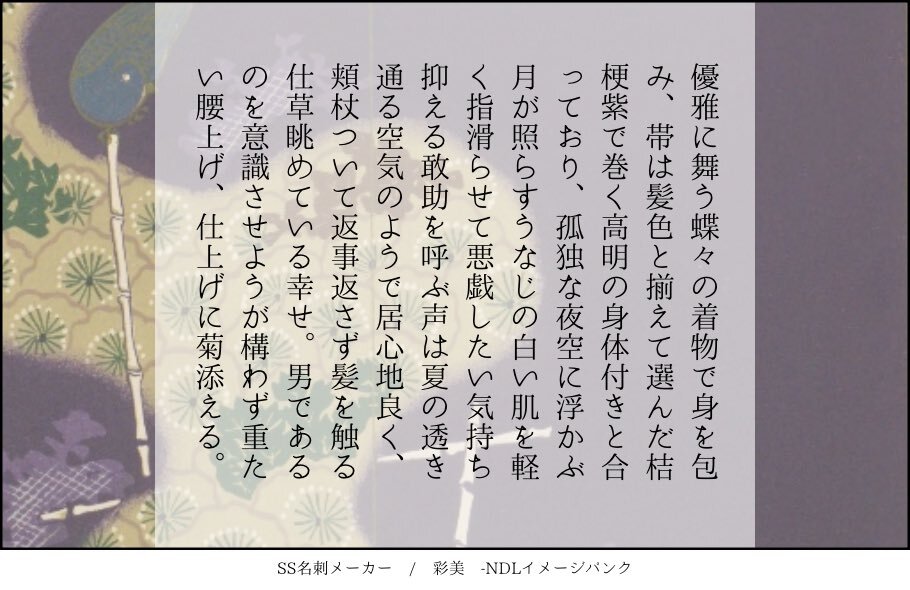 優雅に舞う蝶々の着物で身を包
み、帯は髪色と揃えて選んだ桔
梗紫で巻く高明の身体付きと合
っており、孤独な夜空に浮かぶ
月が照らすうなじの白い肌を軽
く指滑らせて悪戯したい気持ち
抑える敢助を呼ぶ声は夏の透き
通る空気のようで居心地良く、
頬杖ついて返事返さず髪を触る
仕草眺めている幸せ。男である
のを意識させようが構わず重た
い腰上げ、仕上げに菊添える。
SS名刺メーカー / 彩美 -NDLイメージバンク